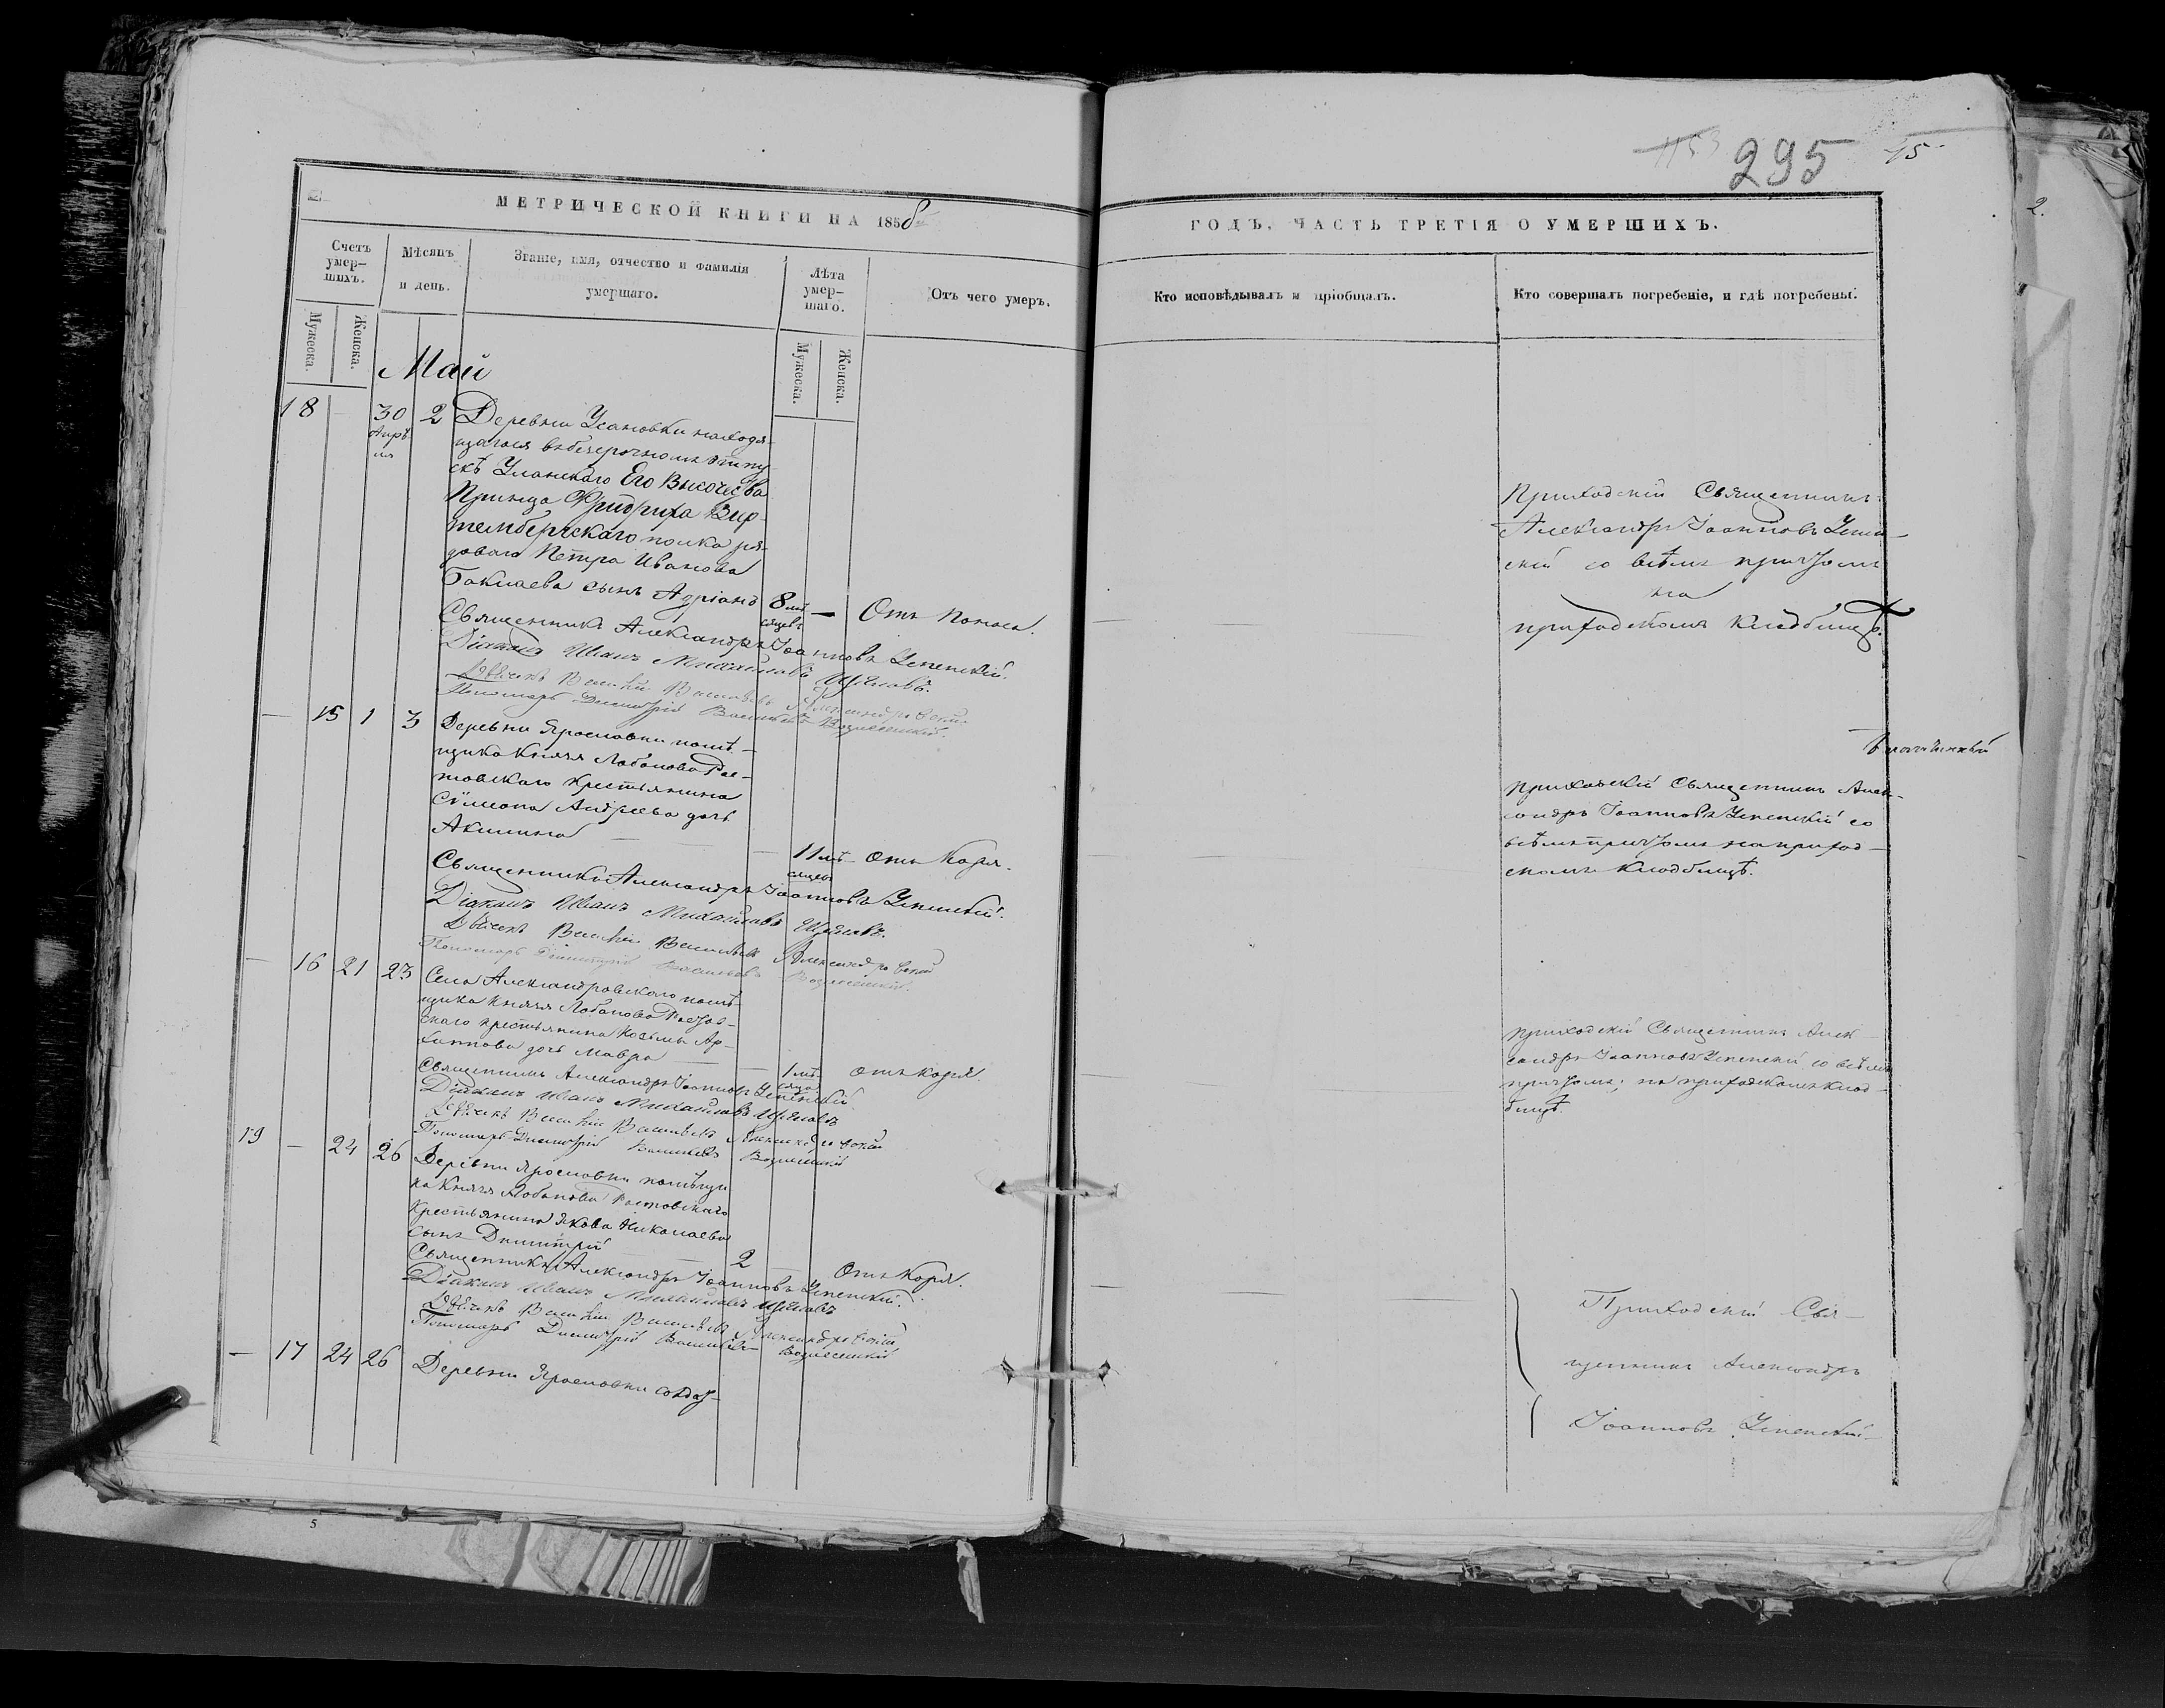 МЕТРИЧЕСКОЙ КНИГИ НА 1858
Счетъ умер-шихъ.
Мужеска.
Женска.
Мѣсяцъ и день.
Званіе, имя, отчество и фамилія умершаго.
Лѣта умер-шаго.
Мужеска.
Женска.
Отъ чего умеръ.
Май
18 — 30 Апрѣля 2 Деревни Усановки находя-
щагося въ безсрочномъ отпу
скѣ Уланскаго Его Высочества
Принца Фридриха Вир-
тембергскаго полка ря-
доваго Петра Иванова
сынъ Адріанъ 8 мѣсяцевъ — Отъ поноса.
Священникъ Александръ Іоанновъ Успенскій.
Діаконъ Иванъ Михайловъ
Дьячекъ Василій Васильевъ Александровскій
Пономарь Димитрій Васильевъ Вознесенскій.
— 15 1 3 Деревни Ярославки помѣ-
щика Князя Лобанова Рос-
товскаго крестьянина
Сѵмеона Андреева дочь
Акилина — — 11 мѣсяцевъ Отъ коря.
Священникъ Александръ Іоанновъ Успенскій.
Діаконъ Иванъ Михайловъ
Дьячекъ Василій Васильевъ Александровскій
Пономарь Димитрій Васильевъ Вознесенскій.
— 16 21 23 Села Александровскаго помѣ-
щика Князя Лобанова Ростов-
скаго крестьянина Козьмы Ар-
хиппова дочь Мавра — — 1 мѣсяца Отъ коря.
Священникъ Александръ Іоанновъ Успенскій.
Діаконъ Иванъ Михайловъ
Дьячекъ Василій Васильевъ Александровскій
Пономарь Димитрій Васильевъ Вознесенскій
19 — 24 26 Деревни Ярославки помѣщи
ка Князя Лобанова Ростовскаго
Крестьянина Якова Николаева
сынъ Димитрій — 2 — Отъ коря.
Священникъ Александръ Іоанновъ Успенскій.
Діаконъ Иванъ Михайловъ
Дьячекъ Василій Васильевъ Александровскій
Пономарь Димитрій Васильевъ Вознесенскій
— 17 24 26 Деревни Ярославки солдат-
295
15
2.
ГОДЪ, ЧАСТЬ ТРЕТІЯ О УМЕРШИХЪ.
Кто исповѣдывалъ и пріобщалъ.
Кто совершалъ погребеніе, и гдѣ погребены.
Приходскій Священникъ
Александръ Іоанновъ Успен-
скій со всѣмъ причтомъ
на
приходскомъ кладбищѣ.
Приходскій Священникъ Алек-
сандръ Іоанновъ Успенскій со
всѣмъ причтомъ на приход-
скомъ кладбищѣ.
Приходскій Священникъ Алек-
сандръ Іоанновъ Успенскій со всѣмъ
причтомъ; на приходскомъ клад-
бищѣ.
Приходскій Свя-
щенникъ Александръ
Іоанновъ Успенскій
5